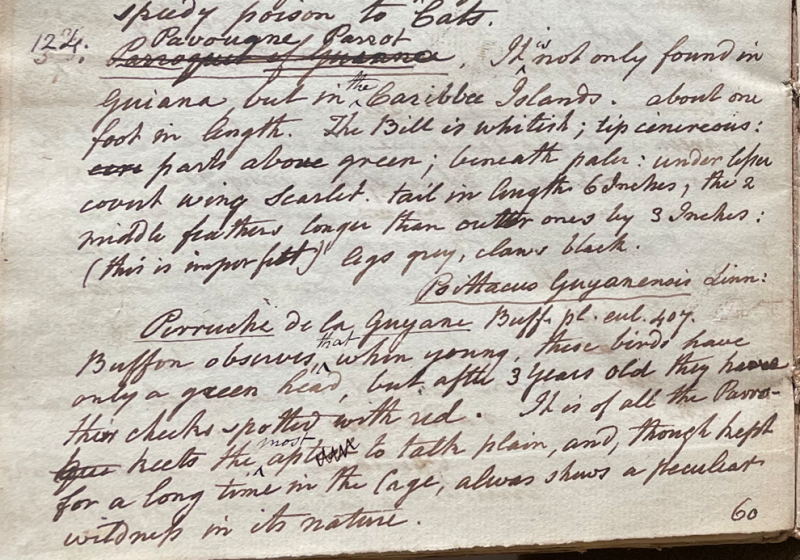 speedy poison to Cats.
Pavouane Parrot
124. Parroquet of Guiana. It is not only found in
Guiana, but in the Caribbee Islands. about one
foot in length. The Bill is whitish; tip cinereous:
parts above green; beneath paler: under lesser
covert wing Scarlet. tail in length 6 Inches, the 2
middle feathers longer than outer ones by 3 Inches:
(this is imperfect) legs grey, claws black.
Psittacus Guyanensis Linn:
Perruche de la Guyane Buff. pl. eul. 407.
Buffon observes, that when young, these birds have
only a green head, but after 3 Years old they have
their cheeks spotted with red. It is of all the Parro-
keets the most apt to talk plain, and, though kept
for a long time in the Cage, alwas shews a peculiar
wildness in its nature.
60